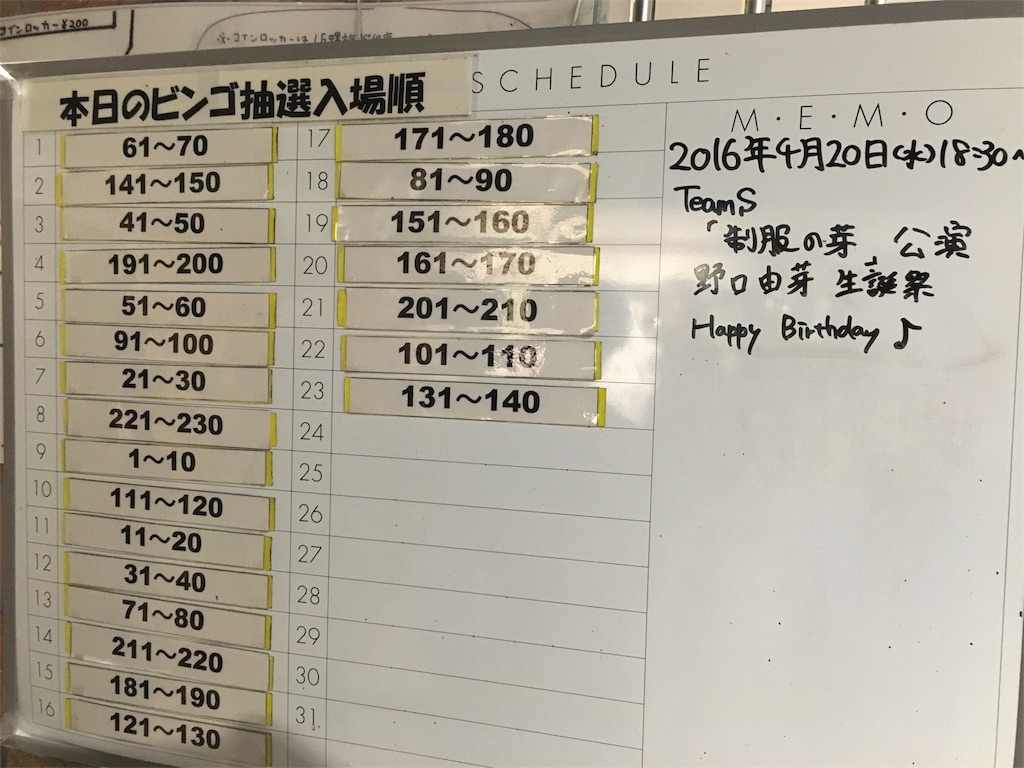 コインロッカー¥200
※コインロッカーは
本日のビンゴ抽選入場順
SCHEDULE
M・E・M・O
1 61～70
2 141～150
3 41～50
4 191～200
5 51～60
6 91～100
7 21～30
8 221～230
9 1～10
10 111～120
11 11～20
12 31～40
13 71～80
14 211～220
15 181～190
16 121～130
17 171～180
18 81～90
19 151～160
20 161～170
21 201～210
22 101～110
23 131～140
24
25
26
27
28
29
30
31
2016年4月20日(水)18:30～
TeamS
「制服の芽」公演
野口由芽 生誕祭
Happy Birthday♪